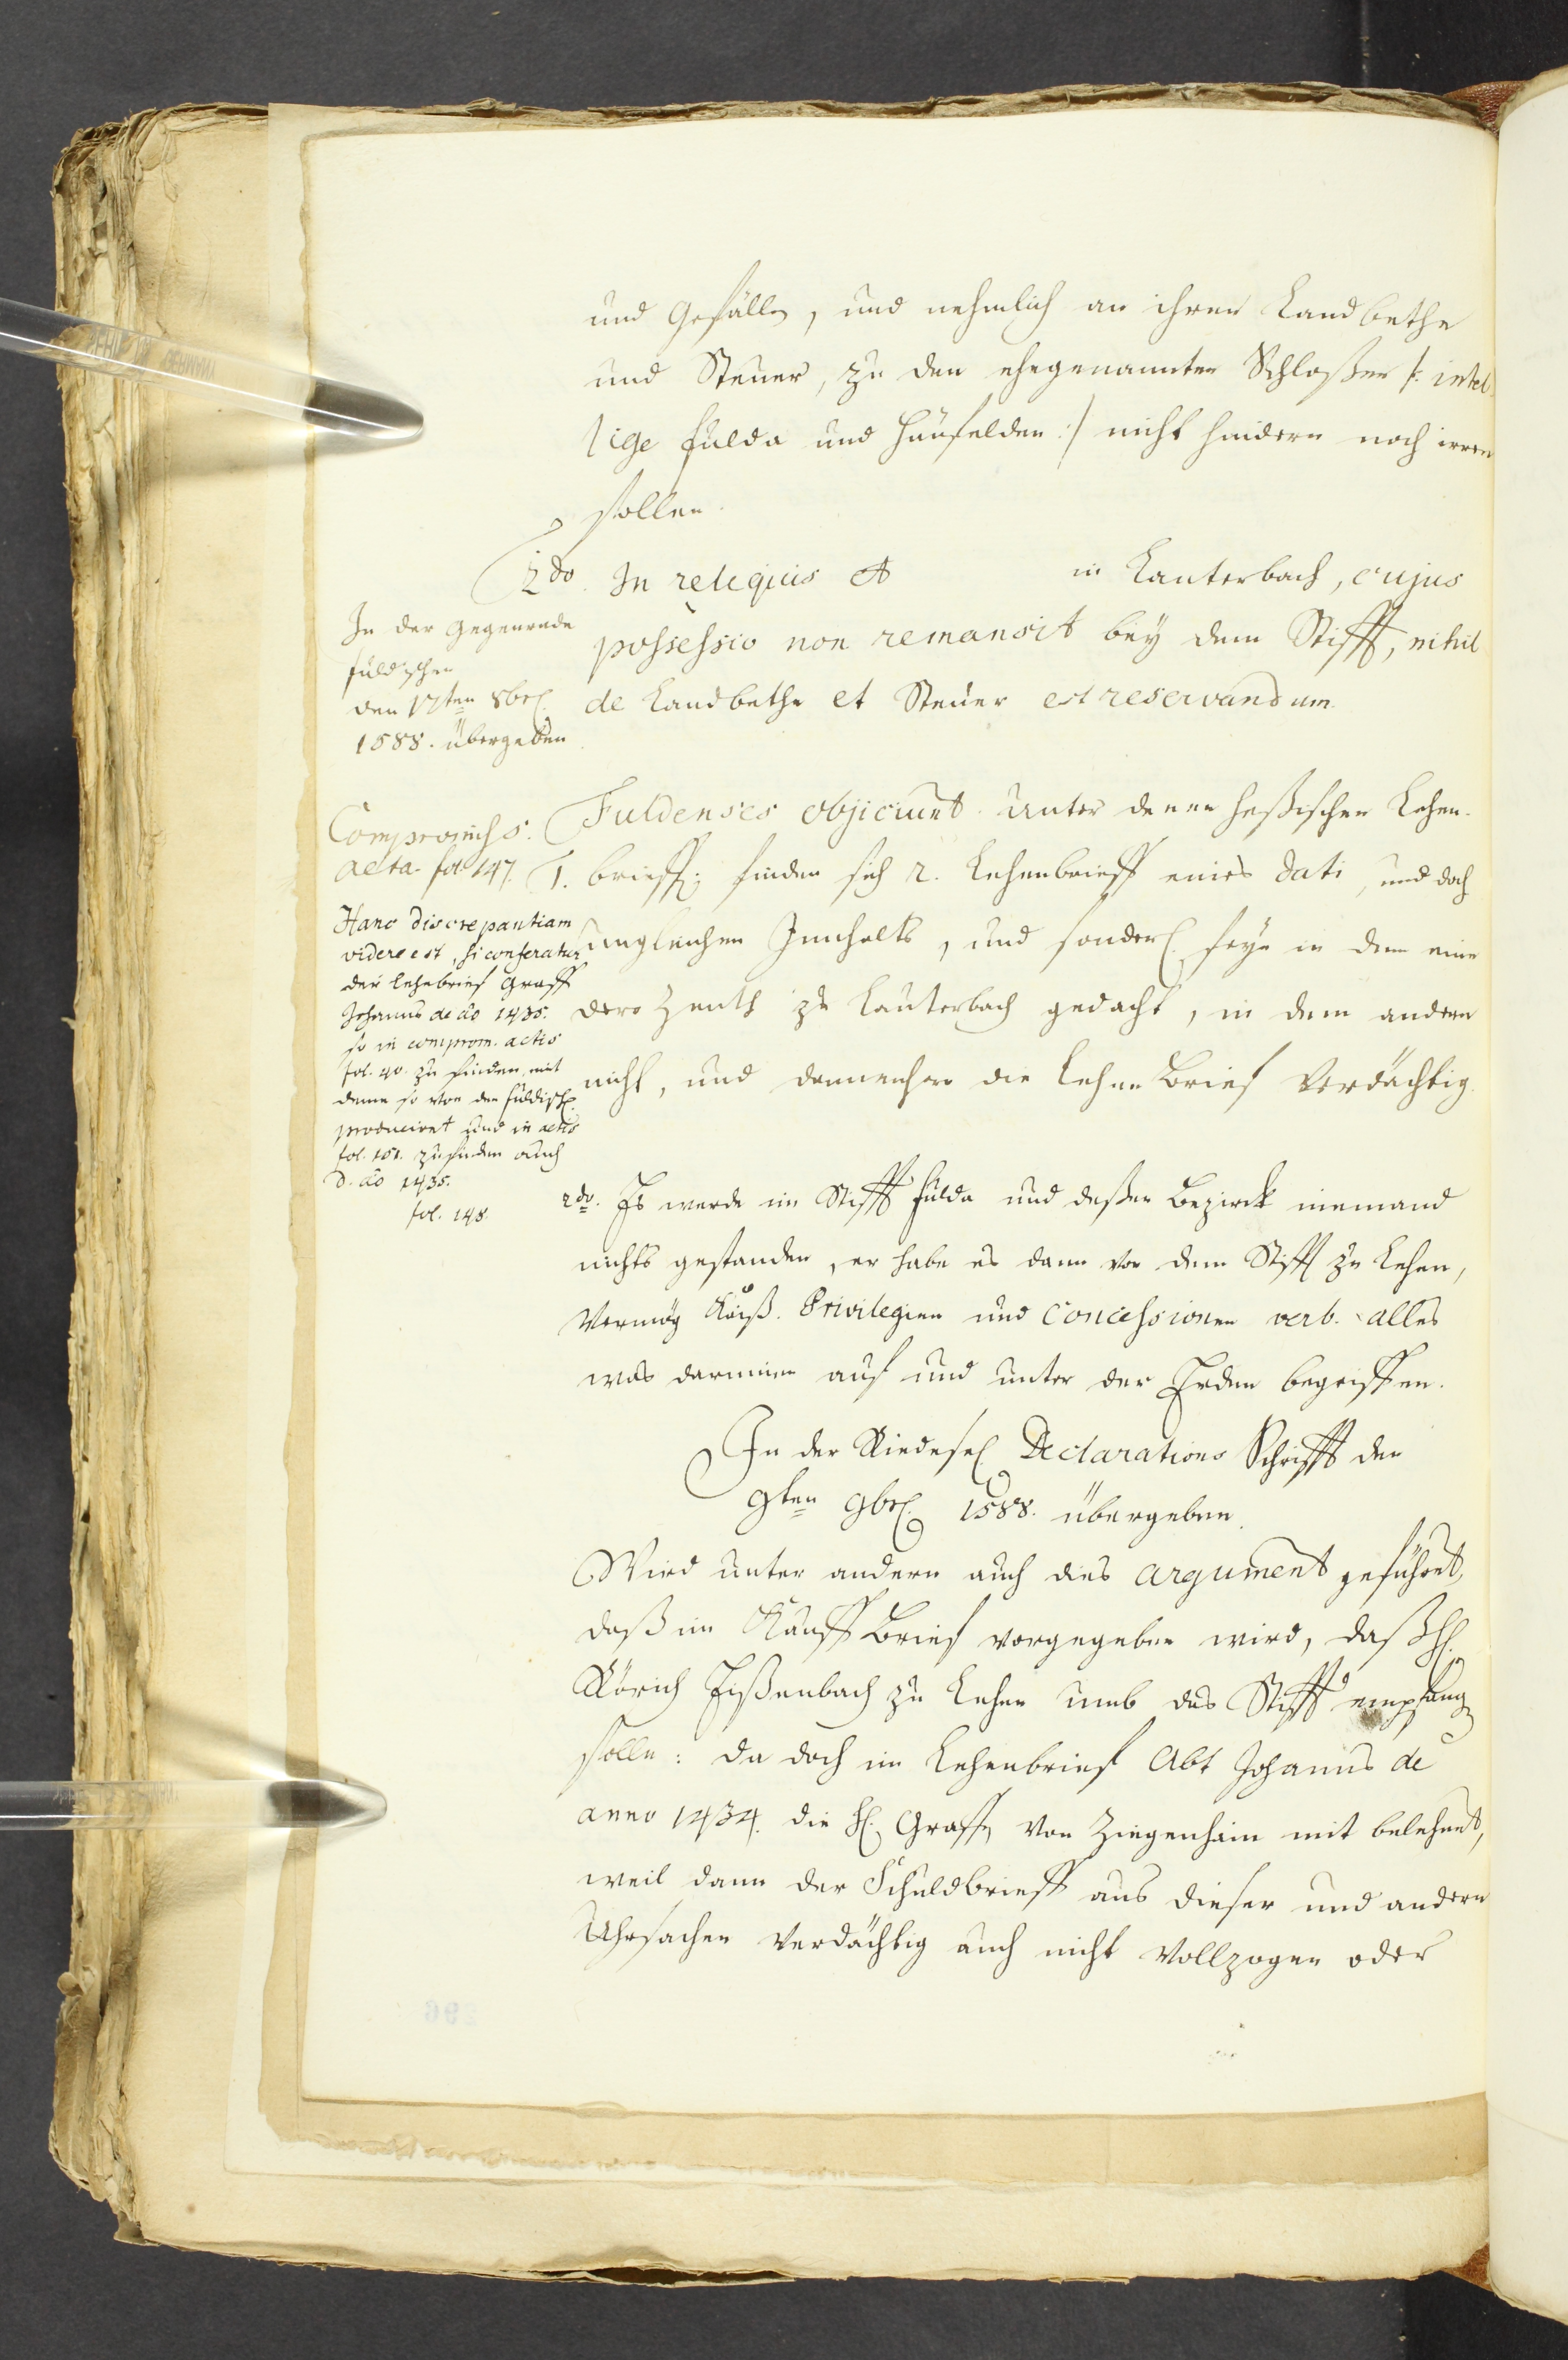 und Gefälle, und nehmlich an ihrer Landbethe
und Steuer, zu den ehegenannten Schloßen /: intel
lige Fulda und Haünfelden :/ nicht hindern noch irren
sollen.
2do. In reliquis et in Lauterbach, cujus
possessio non remansit bey dem Stifft, nihil
de Landbethe et Steuer est reservandum.
In der Gegenrede
fuldischen
den 17ten 8br.
1588. übergeben
Fuldenses objiciunt. Unter denen heßischen Lehen-
1. brieffen finden sich 2. Lehenbrieff eines dati, und doch
ungleichen Innhalts, und sonderl. seye in dem einen
dero Zenth zu Lauterbach gedacht, in dem andern
nicht, und dannenhero die Lehen Brief verdächtig.
Compromiss.
acta fol. 147.
Hanc discrepantiam
videre est, si conferatur
der Lehnbrief Graff
Johanns de ao 1435.
so in comprom. actis
fol. 40. zu finden, mit
deme so von den fuldisch.
produciret und in actis
fol. 151. zu finden auch
d. ao 1435.
fol. 148.
2do. Es werde im Stifft Fulda und deßen Bezirck niemand
nichts gestanden, er habe es dann von dem Stifft zu Lehen,
Vermög Käiß. Privilegien und Concessionen verb. alles
was darinnen auf und unter der Erden begriffen.
In der Riedesel. Declarations Schrifft den
9ten 9br. 1588. übergeben.
Wird unter andern auch dies argument geführet,
daß im Kauff Brief vorgegeben wird, daß H.
Rörich Eißenbach zu Lehen umb das Stifft empfang
solle: da doch im Lehenbrief Abt Johanns de
anno 1434. die H. Graffen von Ziegenhain mit belehnet,
weil dann der Schuldbrieff aus dieser und andern
Uhrsachen verdächtig auch nicht vollzogen oder